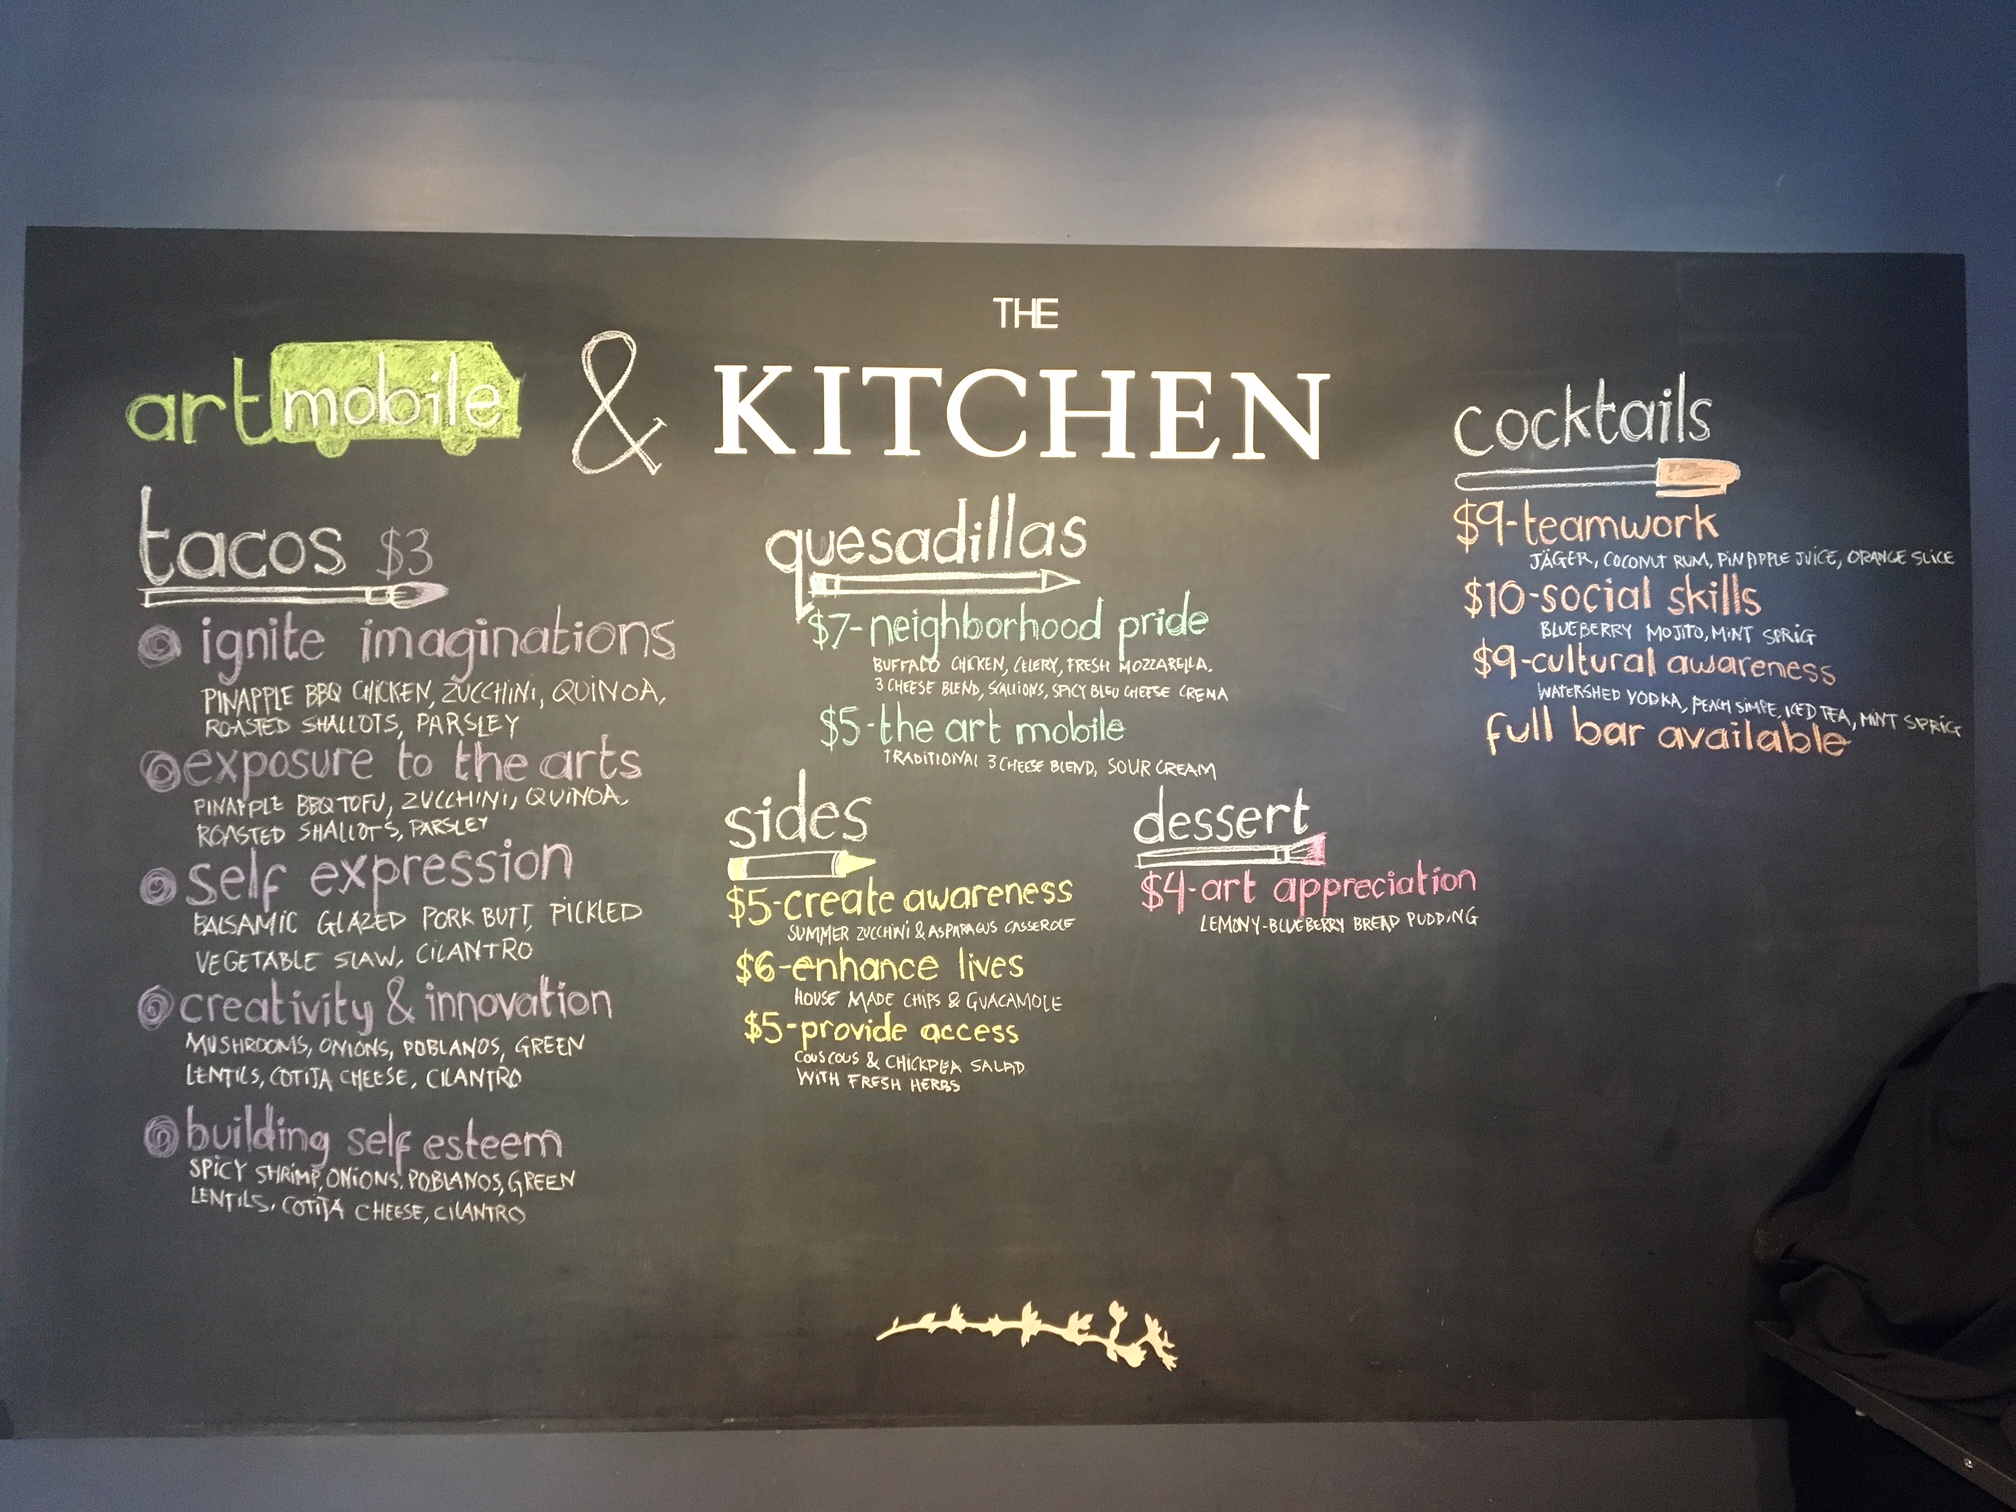 art mobile & THE KITCHEN
tacos $3
ignite imaginations
PINAPPLE BBQ CHICKEN, ZUCCHINI, QUINOA,
ROASTED SHALLOTS, PARSLEY
exposure to the arts
PINAPPLE BBQ TOFU, ZUCCHINI, QUINOA,
ROASTED SHALLOTS, PARSLEY
self expression
BALSAMIC GLAZED PORK BUTT, PICKLED
VEGETABLE SLAW, CILANTRO
creativity & innovation
MUSHROOMS, ONIONS, POBLANOS, GREEN
LENTILS, COTIJA CHEESE, CILANTRO
building self esteem
SPICY SHRIMP, ONIONS, POBLANOS, GREEN
LENTILS, COTIJA CHEESE, CILANTRO
quesadillas
$7-neighborhood pride
BUFFALO CHICKEN, CELERY, FRESH MOZZARELLA,
3 CHEESE BLEND, SCALLIONS, SPICY BLEU CHEESE CREMA
$5-the art mobile
TRADITIONAL 3 CHEESE BLEND, SOUR CREAM
sides
$5-create awareness
SUMMER ZUCCHINI & ASPARAGUS CASSEROLE
$6-enhance lives
HOUSE MADE CHIPS & GUACAMOLE
$5-provide access
COUSCOUS & CHICKPEA SALAD
WITH FRESH HERBS
dessert
$4-art appreciation
LEMONY-BLUEBERRY BREAD PUDDING
cocktails
$9-teamwork
JÄGER, COCONUT RUM, PINAPPLE JUICE, ORANGE SLICE
$10-social skills
BLUEBERRY MOJITO, MINT SPRIG
$9-cultural awareness
WATERSHED VODKA, PEACH SIMPE, ICED TEA, MINT SPRIG
full bar available